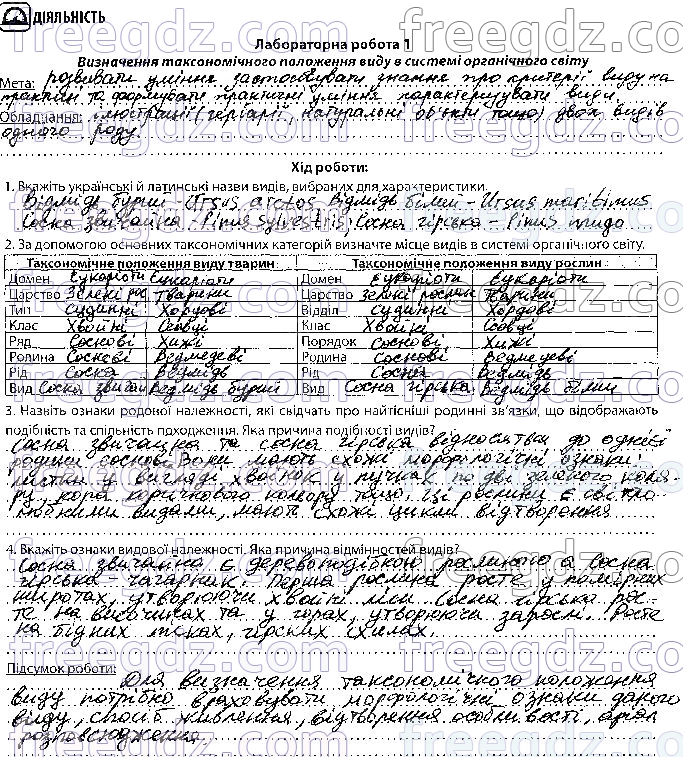 ДІЯЛЬНІСТЬ
Лабораторна робота 1
Визначення таксономічного положення виду в системі органічного світу
Мета: розвивати уміння застосовувати знання про критерії виду на
практиці та формувати практичні уміння характеризувати види.
Обладнання: ілюстрації (гербарії, натуральні об'єкти тощо) двох видів
одного роду.
Хід роботи:
1. Вкажіть українські й латинські назви видів, вибраних для характеристики.
Відмідь бурий - Ursus arctos Відмідь білий - Ursus maritimus
Сосна звичайна - Pinus sylvestris, Сосна гірська - Pinus mugo
2. За допомогою основних таксономічних категорій визначте місце видів в системі органічного світу.
Таксономічне положення виду тварин Таксономічне положення виду рослин
Домен Еукаріоти Еукаріоти Домен Еукаріоти Еукаріоти
Царство Зелені рос Тварини Царство Зелені рослин Тварини
Тип Судинні Хордові Відділ Судинні Хордові
Клас Хвойні Ссавці Клас Хвойні Ссавці
Ряд Соснові Хижі Порядок Соснові Хижі
Родина Соснові Ведмедеві Родина Соснові Ведмедеві
Рід Сосна Ведмідь Рід Сосна Ведмідь
Вид Сосна звичайн Ведмідь бурий Вид Сосна гірська Ведмідь білий
3. Назвіть ознаки родової належності, які свідчать про найтісніші родинні зв'язки, що відображають
подібність та спільність походження. Яка причина подібності видів?
Сосна звичайна та сосна гірська відносяться до однієї
родини соснові. Вони мають схожі морфологічні ознаки:
листки у вигляді хвоїнок у пучках по дві зеленого кольо-
ру, кора коричнового кольору тощо, ці рослини є світло-
любними видами, мають схожі цикли відтворення
4. Вкажіть ознаки видової належності. Яка причина відмінностей видів?
Сосна звичайна є деревоподібною рослиною а сосна
гірська - чагарник. Перша рослина росте у помірних
широтах, утворюючи хвойні ліси. Сосна гірська рос-
те на височинах та у горах, утворюючи зарослі. Росте
на бідних схилах.
Підсумок роботи:
Для визначення таксономічного положення
виду потрібно враховувати морфологічні ознаки даного
виду, спосіб живлення, відтворення особливості, ареал
розповсюдження.
freegdz.com